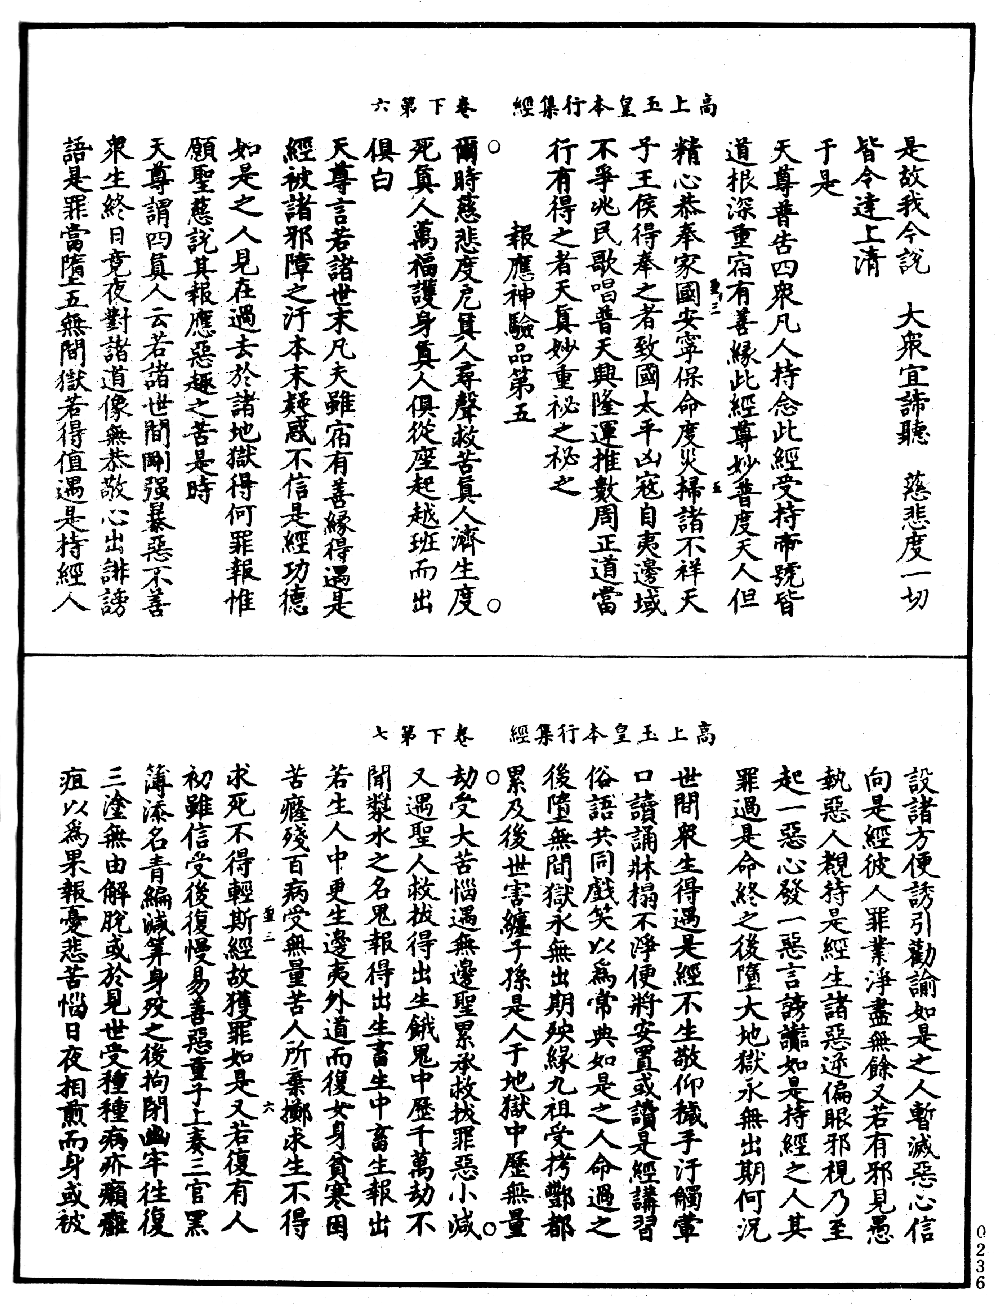 高上玉皇本行集經　卷下第六
是故我今說　大衆宜諦聽　慈悲度一切
皆令達上清
于是
天尊普告四衆凡人持念此經受持帝號皆
道根深重宿有善緣此經尊妙普度天人但
精心恭奉家國安寧保命度災掃諸不祥天
子王侯得奉之者致國太平凶寇自夷邊域
不爭兆民歌唱普天興隆運推數周正道當
行有得之者天真妙重祕之祕之
報應神驗品第五
爾時慈悲度厄真人尋聲救苦真人濟生度
死真人萬福護身真人俱從座起越班而出
俱白
天尊言若諸世末凡夫雖宿有善緣得遇是
經被諸邪障之汙本末疑惑不信是經功德
如是之人見在過去於諸地獄得何罪報惟
願聖慈說其報應惡趣之苦是時
天尊謂四真人云若諸世間剛强暴惡不善
衆生終日竟夜對諸道像無恭敬心出誹謗
語是罪當墮五無間獄若得值遇是持經人
高上玉皇本行集經　卷下第七
設諸方便誘引勸諭如是之人暫滅惡心信
向是經彼人罪業淨盡無餘又若有邪見愚
執惡人覩持是經生諸惡逆偏眼邪視乃至
起一惡心發一惡言謗讟如是持經之人其
罪過是命終之後墮大地獄永無出期何況
世間衆生得遇是經不生敬仰穢手汙觸葷
口讀誦牀榻不淨便將安置或讀是經講習
俗語共同戲笑以爲常典如是之人命過之
後墮無間獄永無出期殃緣九祖受拷酆都
累及後世害纏子孫是人于地獄中歷無量
劫受大苦惱遇無邊聖累承救拔罪惡小減
又遇聖人救拔得出生餓鬼中歷千萬劫不
聞漿水之名鬼報得出生畜生中畜生報出
若生人中更生邊夷外道而復女身貧寒困
苦癃殘百病受無量苦人所棄擲求生不得
求死不得輕斯經故獲罪如是又若復有人
初雖信受後復慢易善惡童子上奏三官黑
簿添名青編減筭身歿之後拘閉幽牢往復
三塗無由解脫或於見世受種種病疥癩癰
疽以爲果報憂悲苦惱日夜相煎而身或被
0236